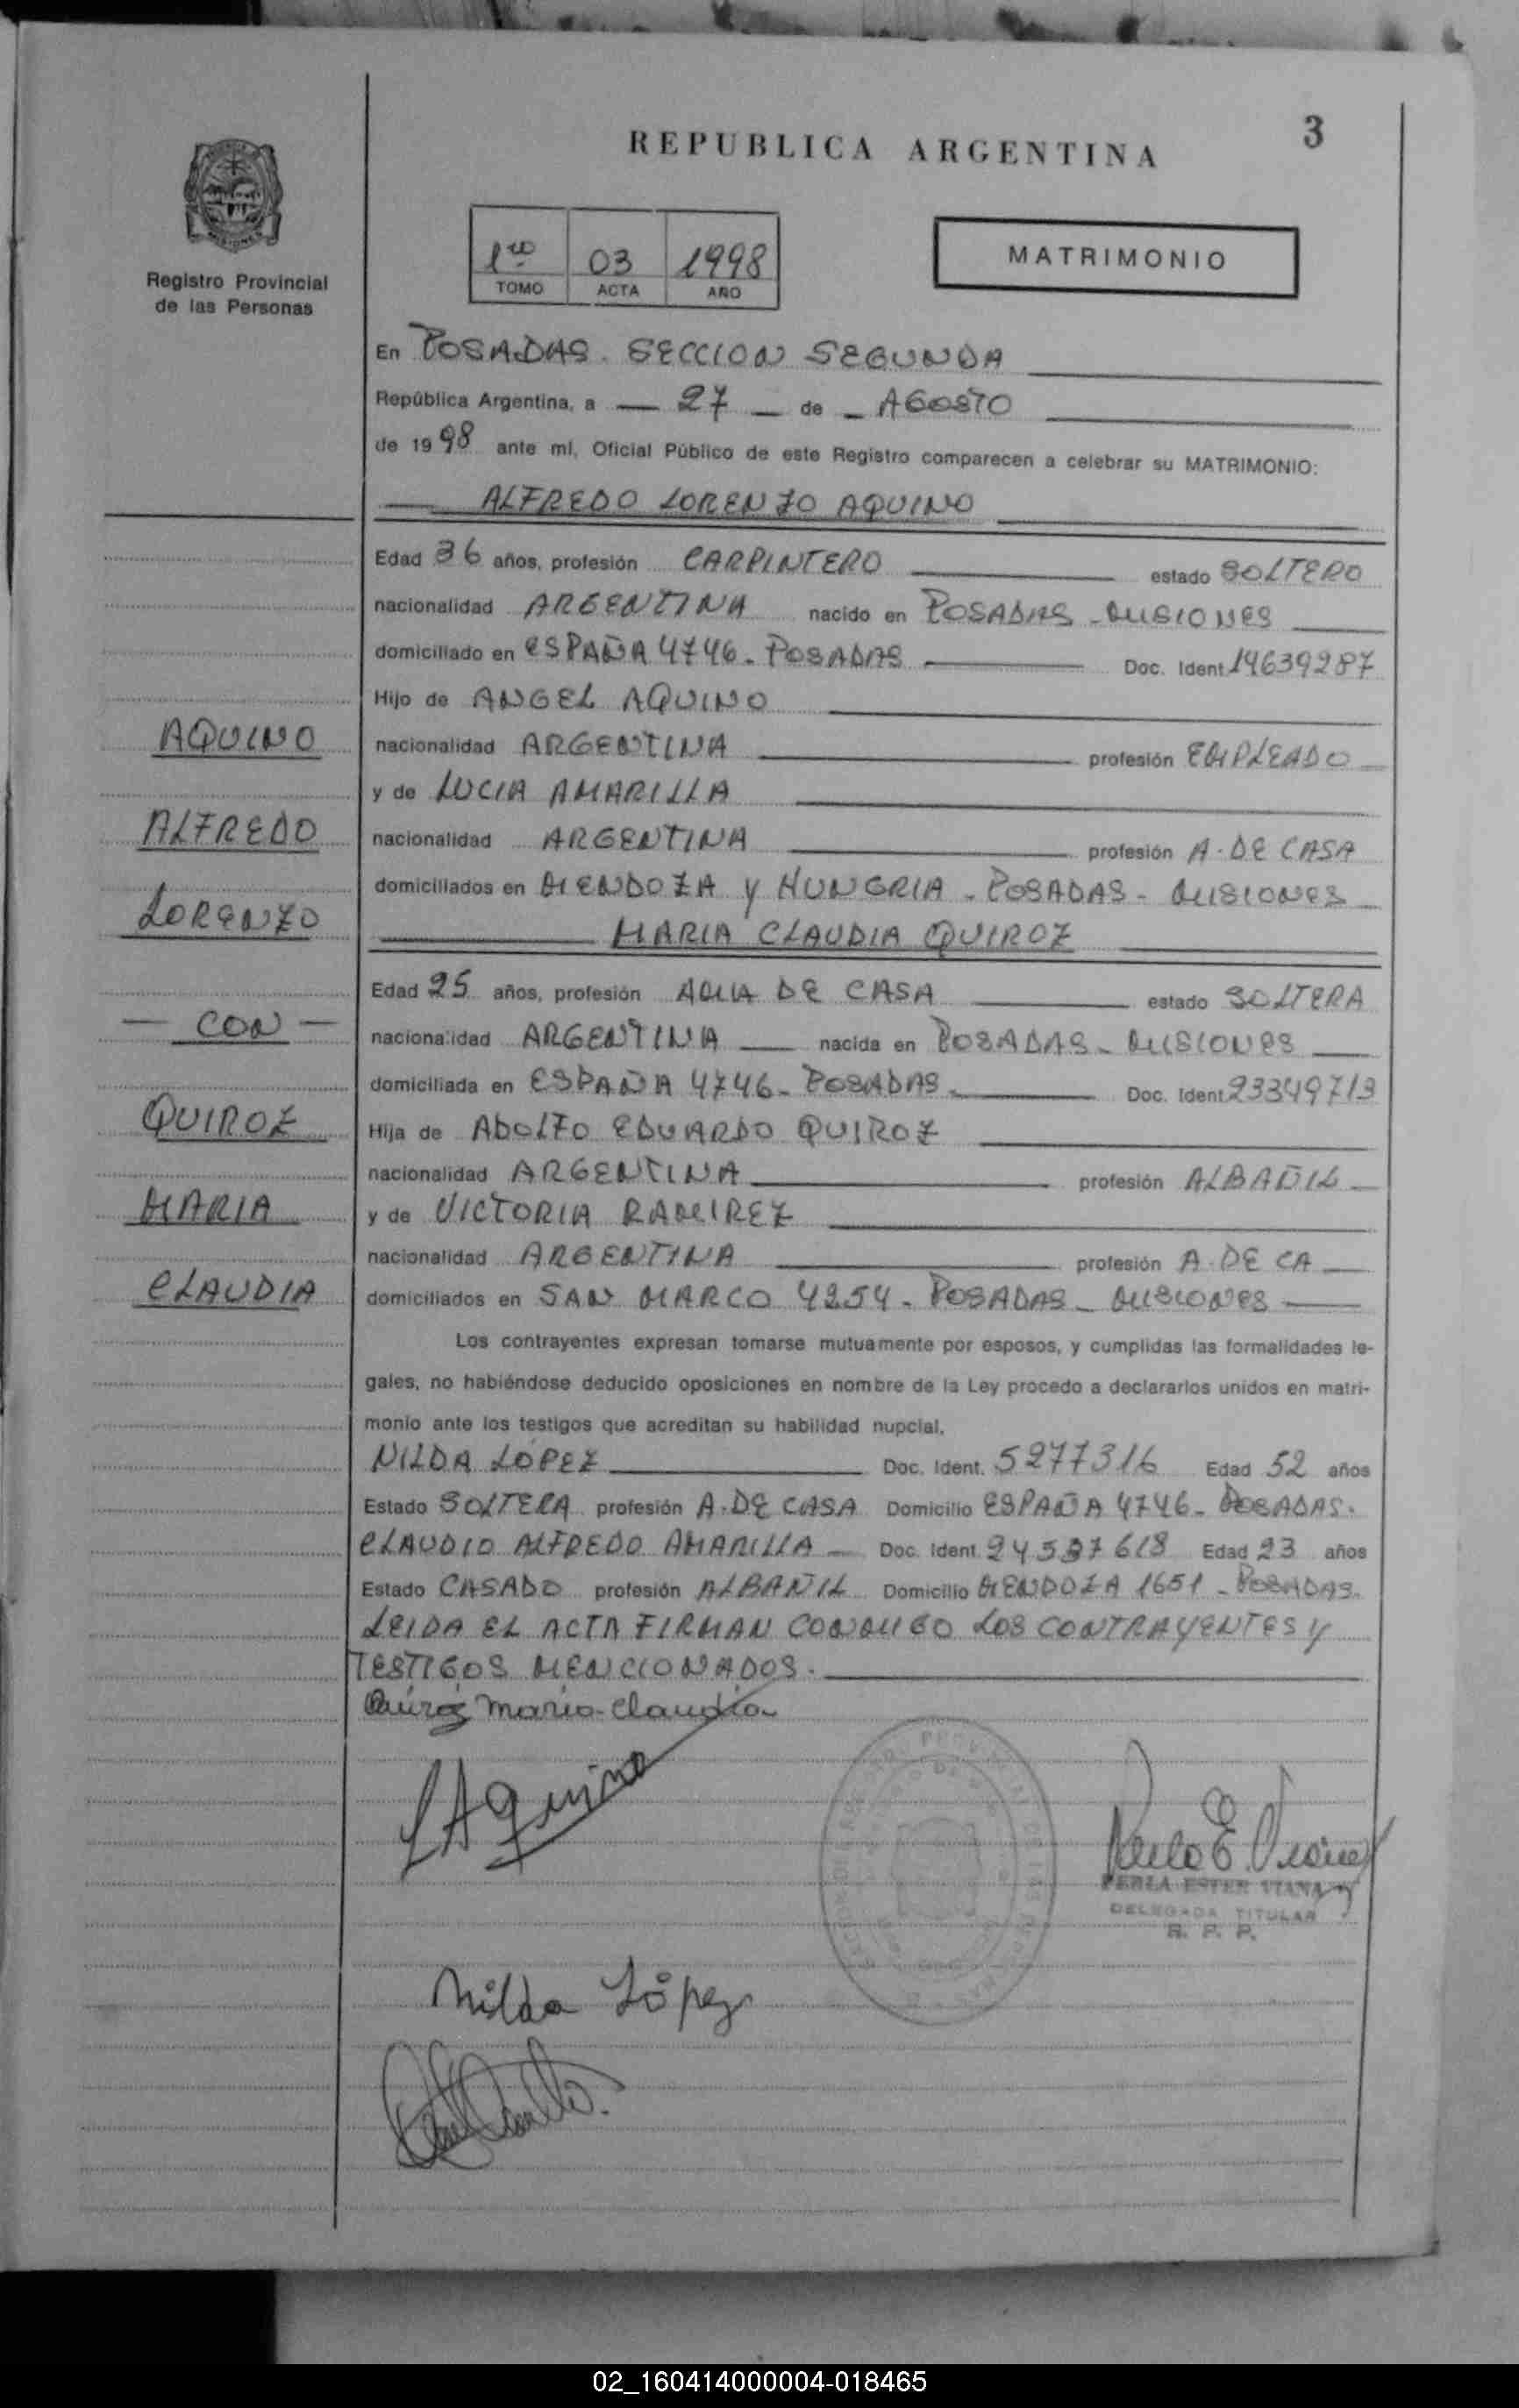 3
REPUBLICA ARGENTINA
Registro Provincial
de las Personas
1ro 03 1998
TOMO ACTA AÑO
MATRIMONIO
En POSADAS. SECCION SEGUNDA
República Argentina, a — 27 — de — AGOSTO
de 1998 ante mí, Oficial Público de este Registro comparecen a celebrar su MATRIMONIO:
ALFREDO LORENZO AQUINO
Edad 36 años, profesión CARPINTERO estado SOLTERO
nacionalidad ARGENTINA nacido en POSADAS - MISIONES
domiciliado en ESPAÑA 4746 - POSADAS Doc. Ident 14639287
Hijo de ANGEL AQUINO
nacionalidad ARGENTINA profesión EMPLEADO
y de LUCIA AMARILLA
nacionalidad ARGENTINA profesión A. DE CASA
domiciliados en MENDOZA y HUNGRIA - POSADAS - MISIONES
MARIA CLAUDIA QUIROZ
Edad 25 años, profesión AMA DE CASA estado SOLTERA
nacionalidad ARGENTINA nacida en POSADAS - MISIONES
domiciliada en ESPAÑA 4746 - POSADAS - Doc. Ident 23349713
Hija de ADOLFO EDUARDO QUIROZ
nacionalidad ARGENTINA profesión ALBAÑIL
y de VICTORIA RAMIREZ
nacionalidad ARGENTINA profesión A. DE CA
domiciliados en SAN MARCO 4254 - POSADAS - MISIONES
AQUINO
ALFREDO
LORENZO
— CON —
QUIROZ
MARIA
CLAUDIA
Los contrayentes expresan tomarse mutuamente por esposos, y cumplidas las formalidades le-
gales, no habiéndose deducido oposiciones en nombre de la Ley procedo a declararlos unidos en matri-
monio ante los testigos que acreditan su habilidad nupcial.
NILDA LOPEZ Doc. Ident. 5277316 Edad 52 años
Estado SOLTERA profesión A. DE CASA Domicilio ESPAÑA 4746 - POSADAS.
CLAUDIO ALFREDO AMARILLA — Doc. Ident. 24537618 Edad 23 años
Estado CASADO profesión ALBAÑIL Domicilio MENDOZA 1651 - POSADAS.
LEIDA EL ACTA FIRMAN CONMIGO LOS CONTRAYENTES y
TESTIGOS MENCIONADOS.
Quiroz Maria Claudia
LAquino
PERLA ESTER VIANA
DELEGADA TITULAR
R. P. P.
Nilda López
02_160414000004-018465